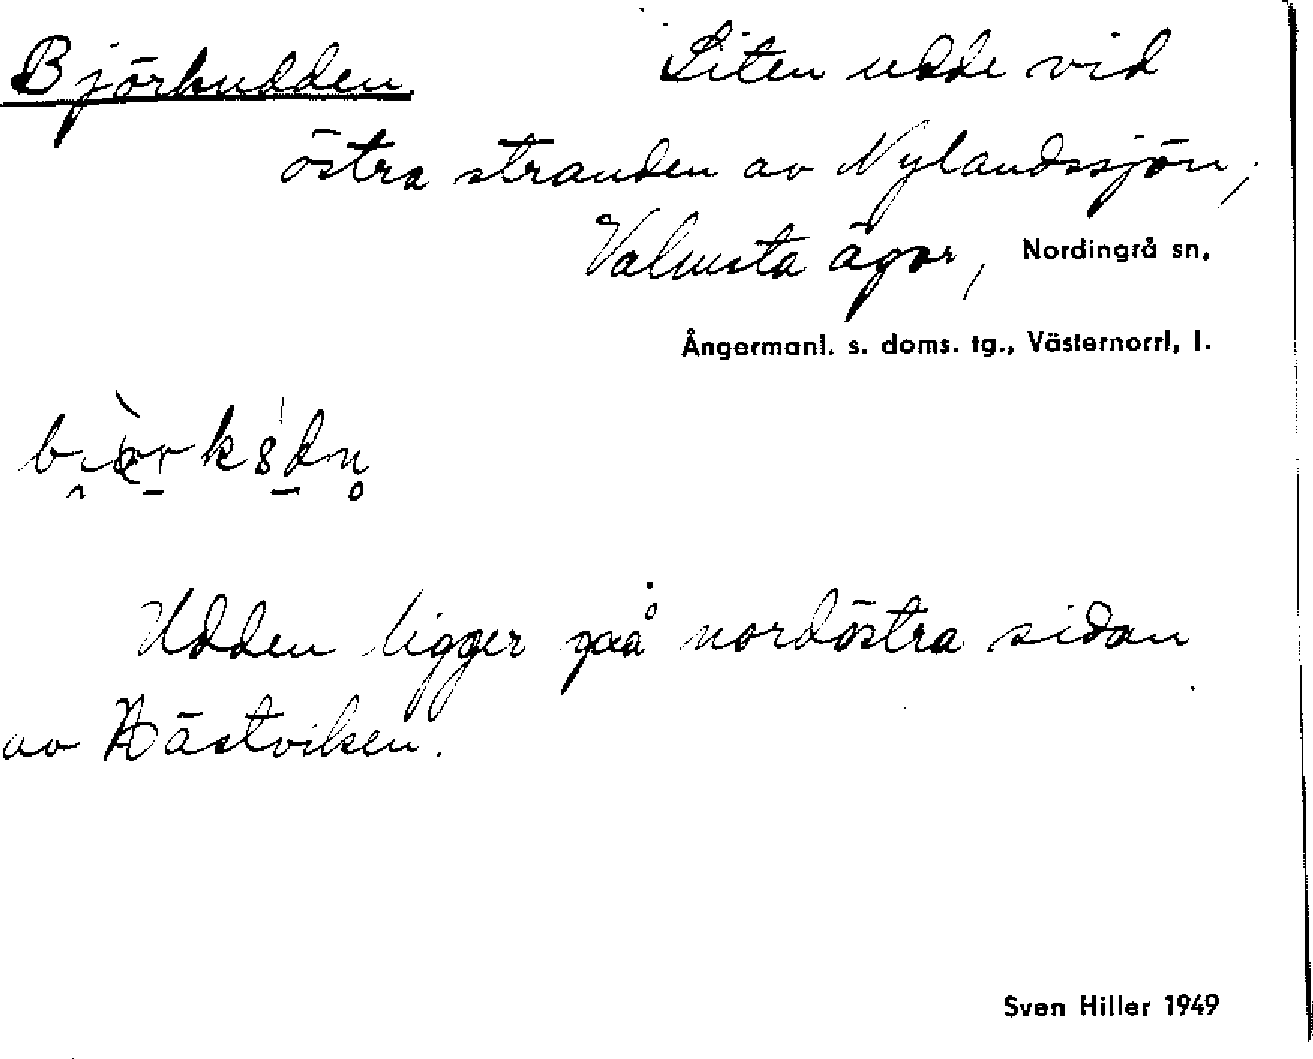 Björkudden Liten udde vid
östra stranden av Nylandssjön;
Valmsta ägor, Nordingrå sn,
Ångermanl. s. doms. tg., Västernorrl, l.
Udden ligger på nordöstra sidan
av Hästviken.
Sven Hiller 1949